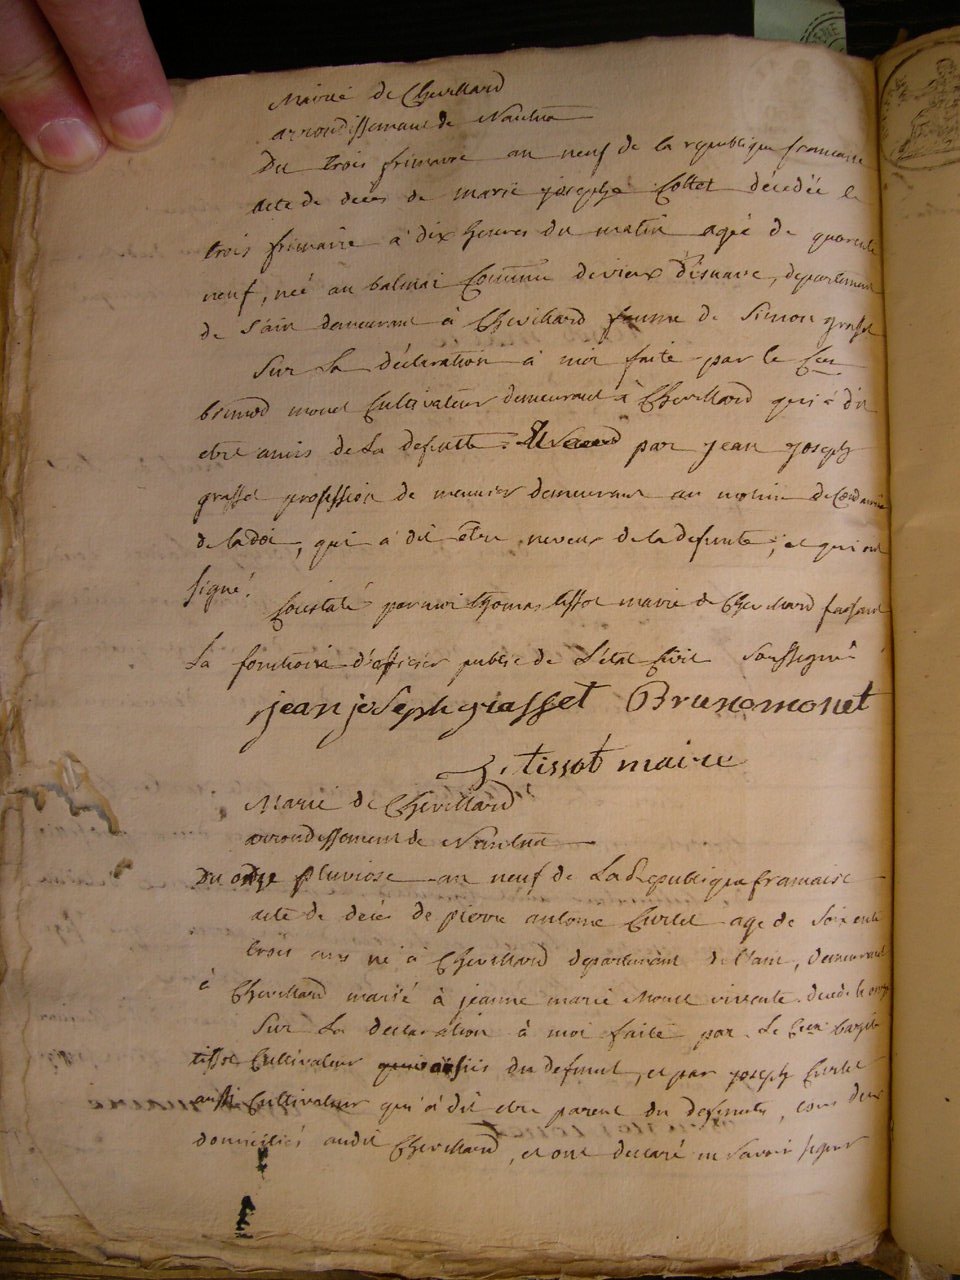 Mairié de Chevillard
arrondissemant de Nantua
Du trois frimaire an neuf de la republique francaise
acte de deces de marie josephe Collet décédée le
trois frimaire à dix heures du matin agée de quarente
neuf, née au balmai Commune de vieux d'isnave, departement
de l'ain demeurant à Chevillard femme de Simon grasset
Sur La déclaration à moi faite par le Cen
brunod monet Cultivateur demeurant à Chevillard qui à dit
etre amis de La defunte. par jean joseph
grasset profession de meunier demeurant au molin de
de la doi, qui à dit être neveux de la defunte, et qui ont
signé.
Constaté par moi thomas tissot maire de Chevillard faisant
La fonctions d'officier public de L'état Civil Soussigné
jean joseph grasset Brunomonet
tissot maire
Marié de Chevillard
arrondissement de Nantua
Du onze pluviose an neuf de La Republique francaise
acte de décés de pierre antoine Curtet age de Soixente
trois ans né à Chevillard departemant de l'ain, demeurant
à Chevillard marié à jeanne marie Monet vivente décédé le onze
Sur La declaration à moi faite par Le Cen
tissot Cultivateur amis du defunt, et par joseph Curtet
aussi Cultivateur qui à dit etre parent du defunt, tous deux
domiciliés audit Chevillard, et ont declaré ne savoir signer